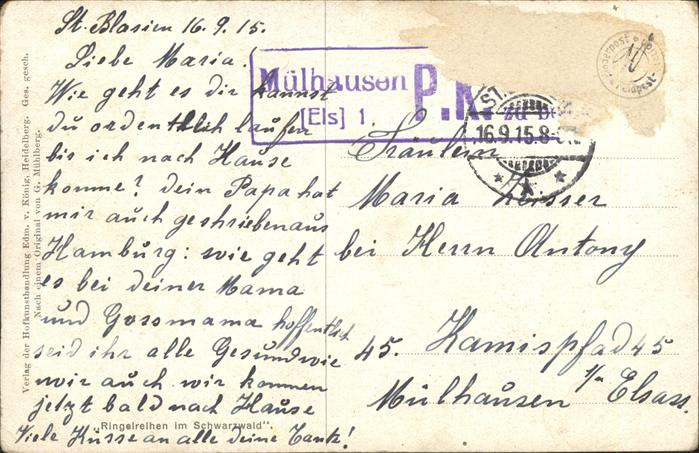 St. Blasien 16.9.15.
Liebe Maria.
Wie geht es dir kannst
du ordentlich laufen
bis ich nach Hause
komme? dein Papa hat
mir auch geschrieben aus
Hamburg: wie geht
es bei deiner Mama
und Gossmama hoffentlich
seid ihr alle Gesund wie
wir auch wir kommen
jetzt bald nach Hause
Viele Küsse an alle deine Tante!
Mülhausen
[Els] 1.
P.K.
16.9.15.8-
Fräulein
Maria
bei Herrn Antony
45. Kamispfad 45
Mülhausen i/n Elsass.
"Ringelreihen im Schwarzwald".
Verlag der Hofkunsthandlung Edm. v. König, Heidelberg. Ges. gesch.
Nach einem Original von G. Mühlberg.